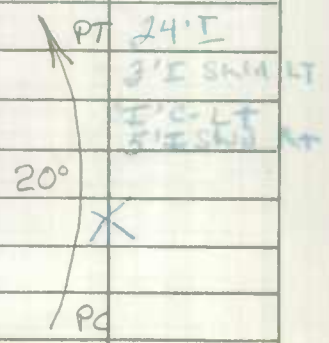 PT 24' I
3' I Shld LT
I' C- Lt
5' I Shld Rt
20°
X
PC